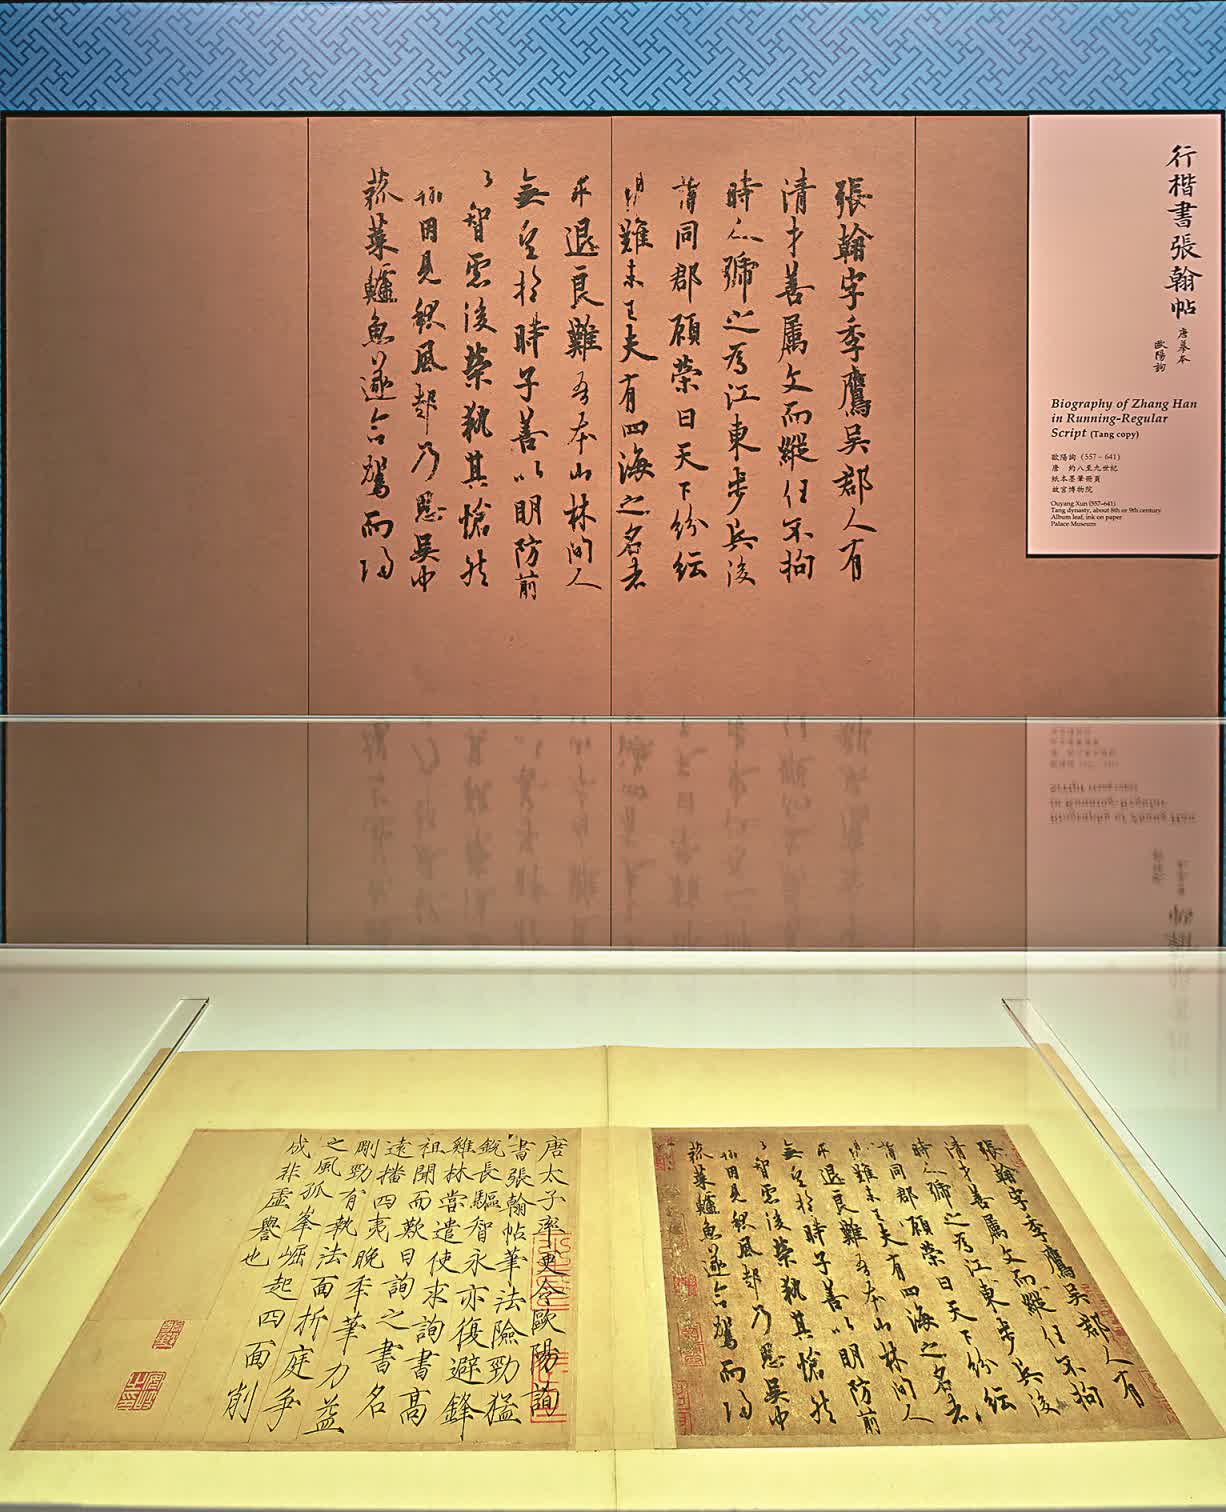 行楷書張翰帖
唐摹本
歐陽詢
Biography of Zhang Han
in Running-Regular
Script (Tang copy)
歐陽詢（557－641）
唐　約八至九世紀
紙本墨筆冊頁
故宮博物院
Ouyang Xun (557–641)
Tang dynasty, about 8th or 9th century
Album leaf, ink on paper
Palace Museum
張翰字季鷹吳郡人有
清才善屬文而縱任不拘
時人號之為江東步兵後
謂同郡顧榮曰天下紛紜
難未已夫有四海之名者
求退良難吾本山林間人
無望於時子善以明防前
智慮後榮執其愴然
翰因見秋風起乃思吳中
菰菜鱸魚遂命駕而歸
張翰字季鷹吳郡人有
清才善屬文而縱任不拘
時人號之為江東步兵後
謂同郡顧榮曰天下紛紜
難未已夫有四海之名者
求退良難吾本山林間人
無望於時子善以明防前
智慮後榮執其愴然
翰因見秋風起乃思吳中
菰菜鱸魚遂命駕而歸
唐太子率更令歐陽詢
書張翰帖筆法險勁猛
銳長驅智永亦復避鋒
雞林嘗遣使求詢書高
祖聞而歎曰詢之書名
遠播四夷晚年筆力益
剛勁有執法面折庭爭
之風孤峯崛起四面削
成非虛譽也